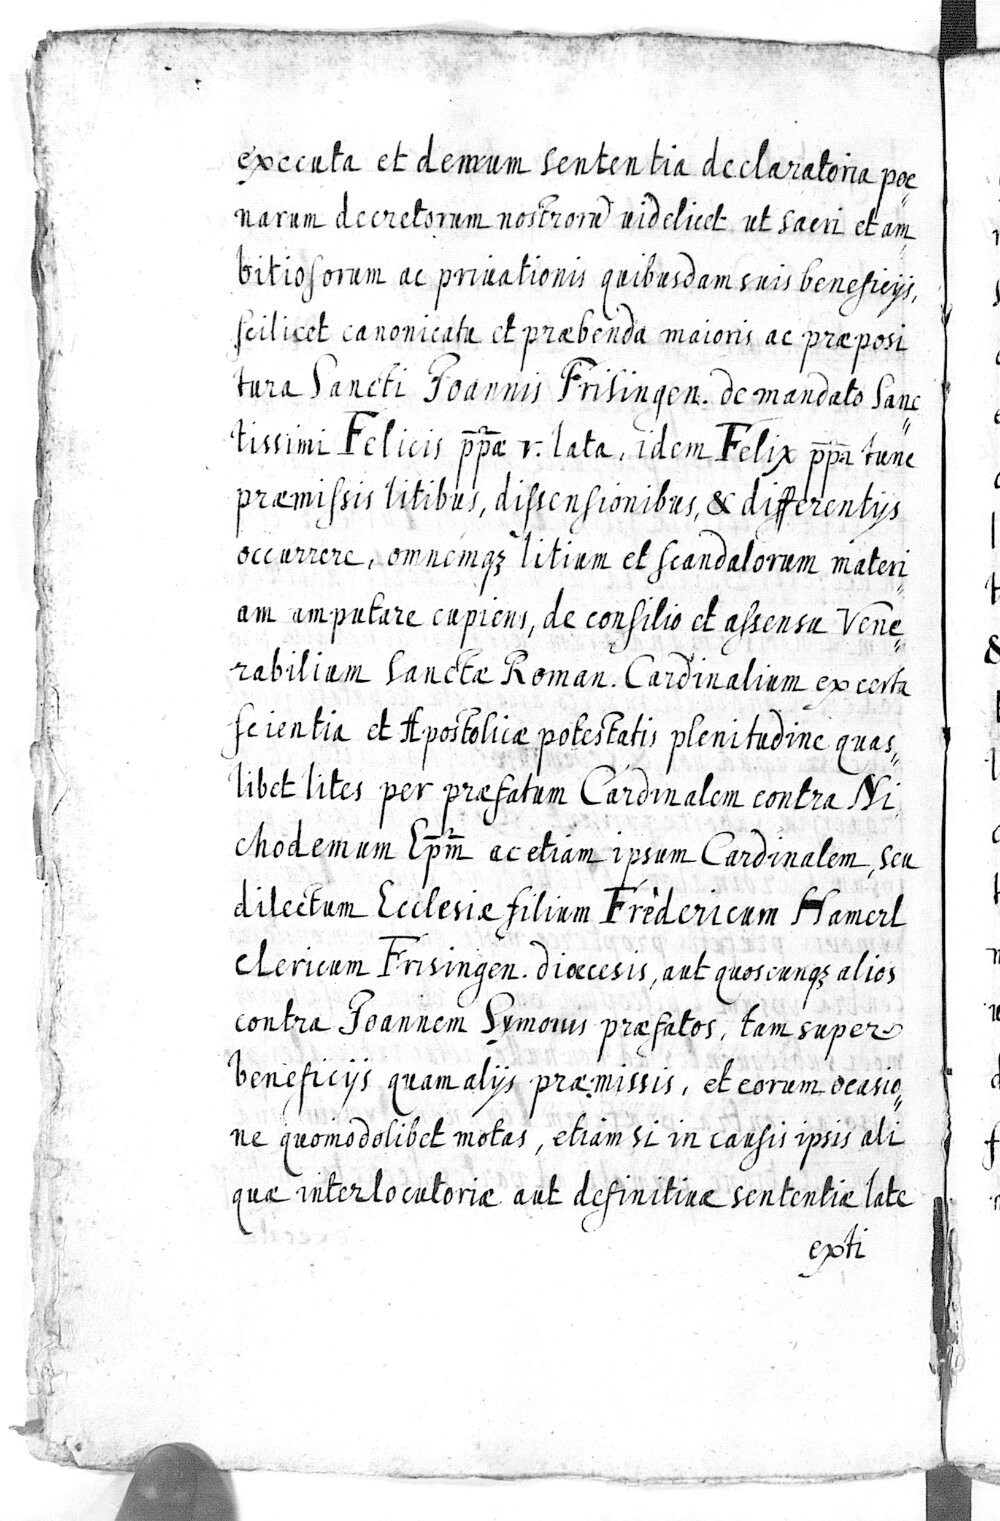 executa et demum sententia declaratoria poe„
narum decretorum nostrorũ uidelicet ut sacri et am„
bitiosorum ac priuationis quibusdam suis beneficijs,
scilicet canonicatu et præbenda maioris ac præposi
tura Sancti Joannis Frisingen. de mandato Sanc„
tissimi Felicis p̄p̄æ v. lata, idem Felix p̄p̄a tunc
præmissis litibus, dissensionibus, & differentijs
occurrere, omnemqꝫ litium et scandalorum materi„
am amputare cupiens, de consilio et assensu Vene„
rabilium Sanctæ Roman. Cardinalium ex certa
scientia et Apostolicæ potestatis plenitudine quas„
libet lites per præfatum Cardinalem contra Ni„
chodemum Ep̄m̄ ac etiam ipsum Cardinalem, seu
dilectum Ecclesiæ filium Fredericum Hamerl
clericum Frisingen. diœcesis, aut quoscunqꝫ alios
contra Joannem Symonis præfatos, tam super
beneficijs quam alijs præmissis, et eorum ocasio„
ne quomodolibet motas, etiam si in causis ipsis ali
quæ interlocutoriæ aut definitiuæ sententiæ late
exti